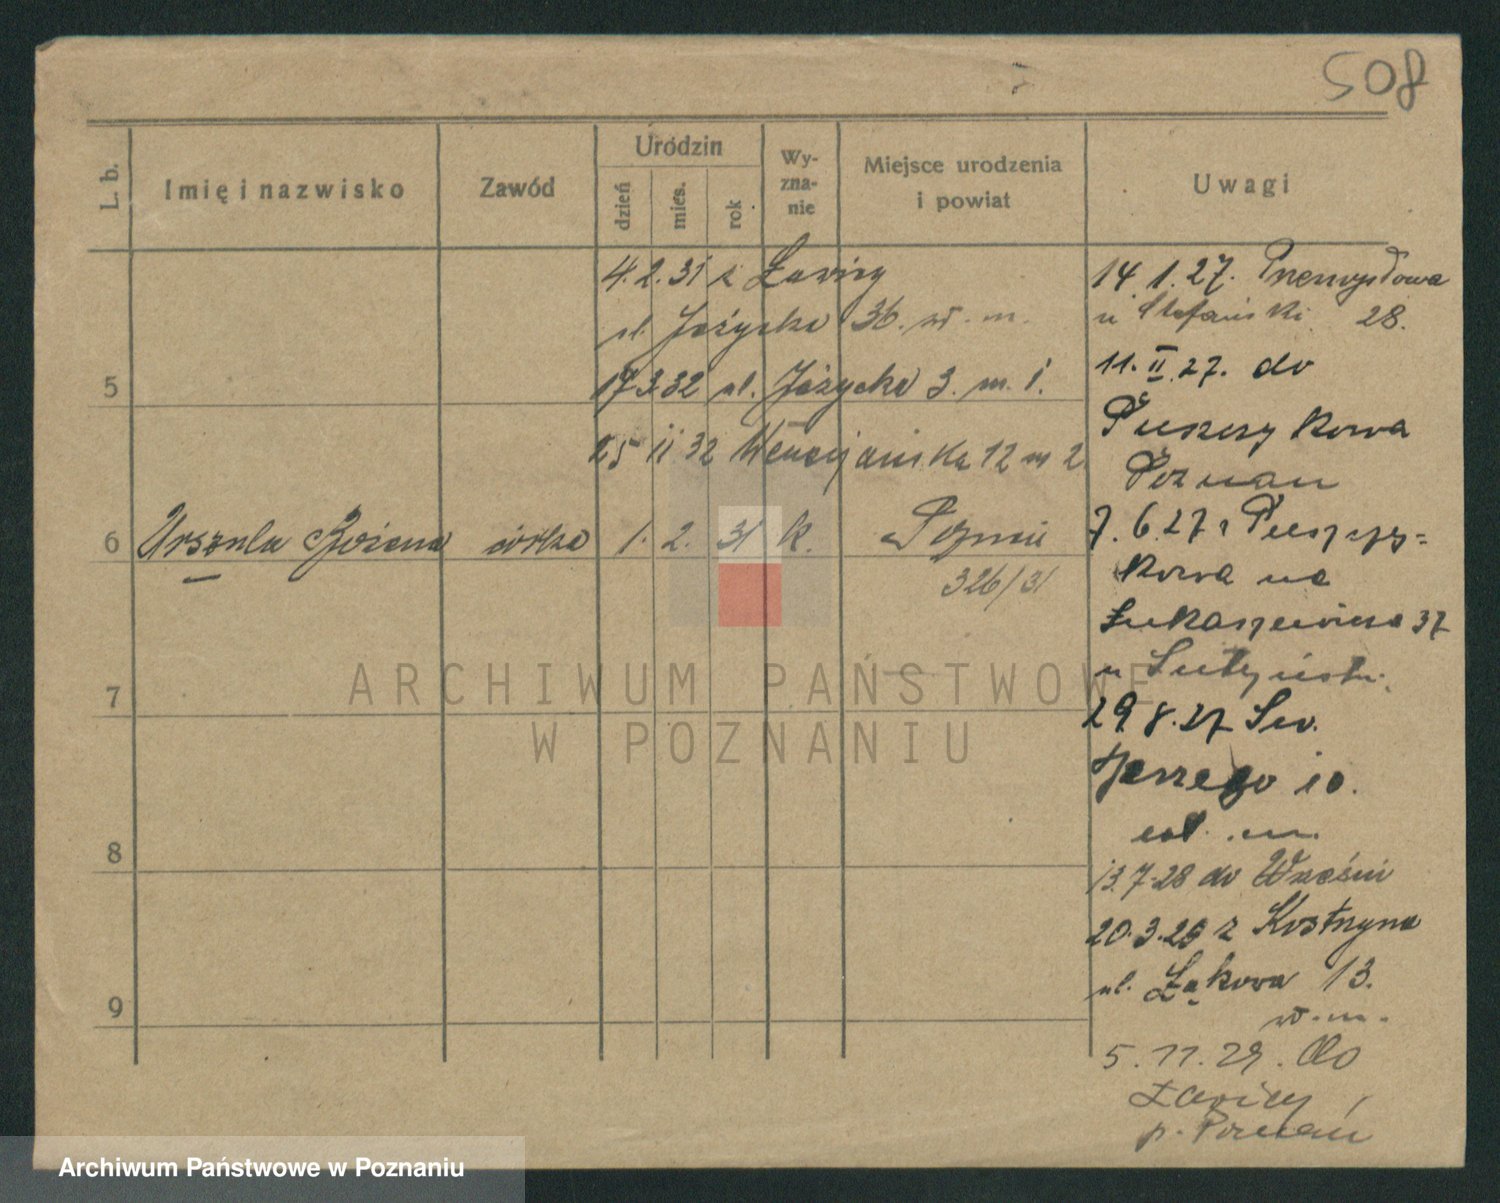 508
L. b.
Imię i nazwisko
Zawód
Urodzin
dzień
mies.
rok
Wy-
zna-
nie
Miejsce urodzenia
i powiat
Uwagi
4.2.31 z Ławicy
ul. Jeżycka 36. wł. m.
17.3.32 ul. Jeżycka 3. m. 1.
5
25 11 32 Wenecjańska 12 m 2
6 Urszula Bożena córka 1. 2. 31 k. Poznań
326/31
7
8
9
14 1.27. Przemysłowa
u Stefański 28.
11. II 27. do
Puszczykowa
Poznań
7.6.27 z Puszczy-
kowa na
Łukaszewicza 37
u
29.8.27 Św.
Jerzego 10.
wł. m.
13.7.28 do Wrześni
20.3.29 z Kostrzyna
ul. Łąkowa 13.
wł. m.
5.11.29. do
Ławicy
p. Poznań
ARCHIWUM PAŃSTWOWE
W POZNANIU
Archiwum Państwowe w Poznaniu